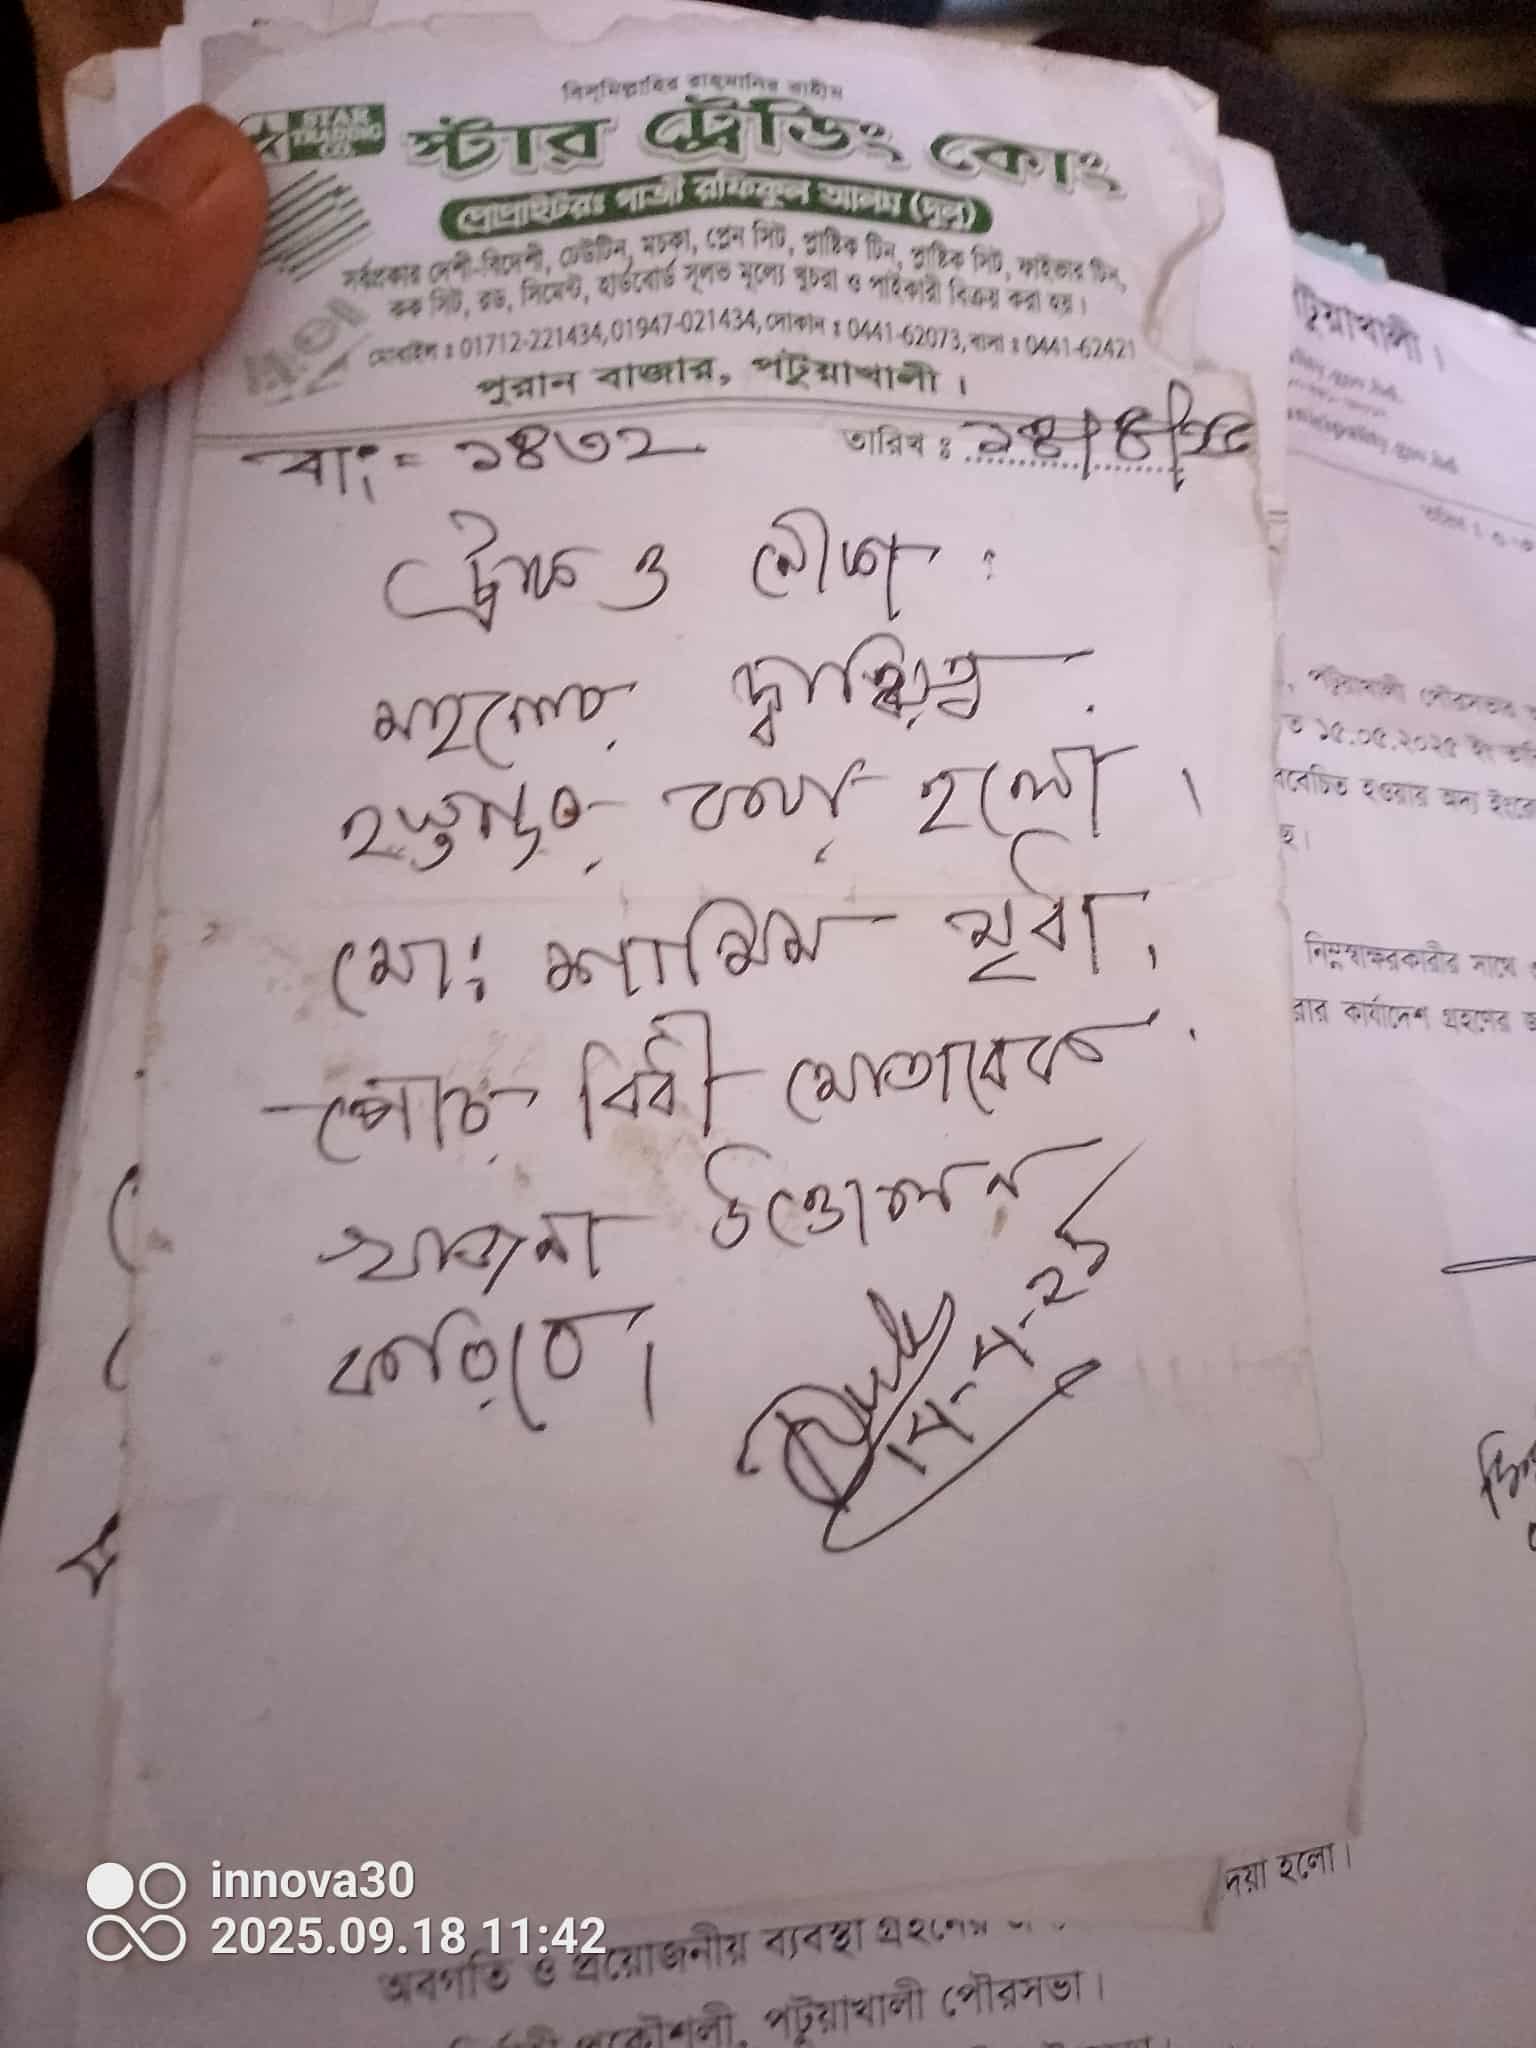 বিসমিল্লাহির রাহমানির রাহীম
STAR
TRADING
CO.
স্টার ট্রেডিং কোং
প্রোপ্রাইটরঃ গাজী রফিকুল আলম (দুলু)
সর্বপ্রকার দেশী-বিদেশী, ঢেউটিন, মচকা, প্লেন সিট, প্লাষ্টিক টিন, প্লাষ্টিক সিট, ফাইভার টিন,
কক সিট, রড, সিমেন্ট, হার্ডবোর্ড সূলভ মূল্যে খুচরা ও পাইকারী বিক্রয় করা হয়।
মোবাইল ঃ 01712-221434, 01947-021434, দোকান ঃ 0441-62073, বাসা ঃ 0441-62421
পুরান বাজার, পটুয়াখালী।
বাং = ১৪৩২
তারিখ ঃ ১৪/৪/২৫
ট্রাক ও নৌকা
মহলের
করা হলো।
মোঃ শামিম মৃর্ধা।
পৌর বির্ধী মোতাবেক
খাজনা উত্তোলন
করিবে।
14-4-25
টুয়াখালী।
পটুয়াখালী পৌরসভার
১৫.০৫.২০২৫ ইং
বেচিত হওয়ার জন্য
নিম্নস্বাক্ষরকারীর সাথে
কার্যাদেশ গ্রহণের
দেয়া হলো।
অবগতি ও প্রয়োজনীয় ব্যবস্থা গ্রহণের
প্রকৌশলী, পটুয়াখালী পৌরসভা।
innova30
2025.09.18 11:42